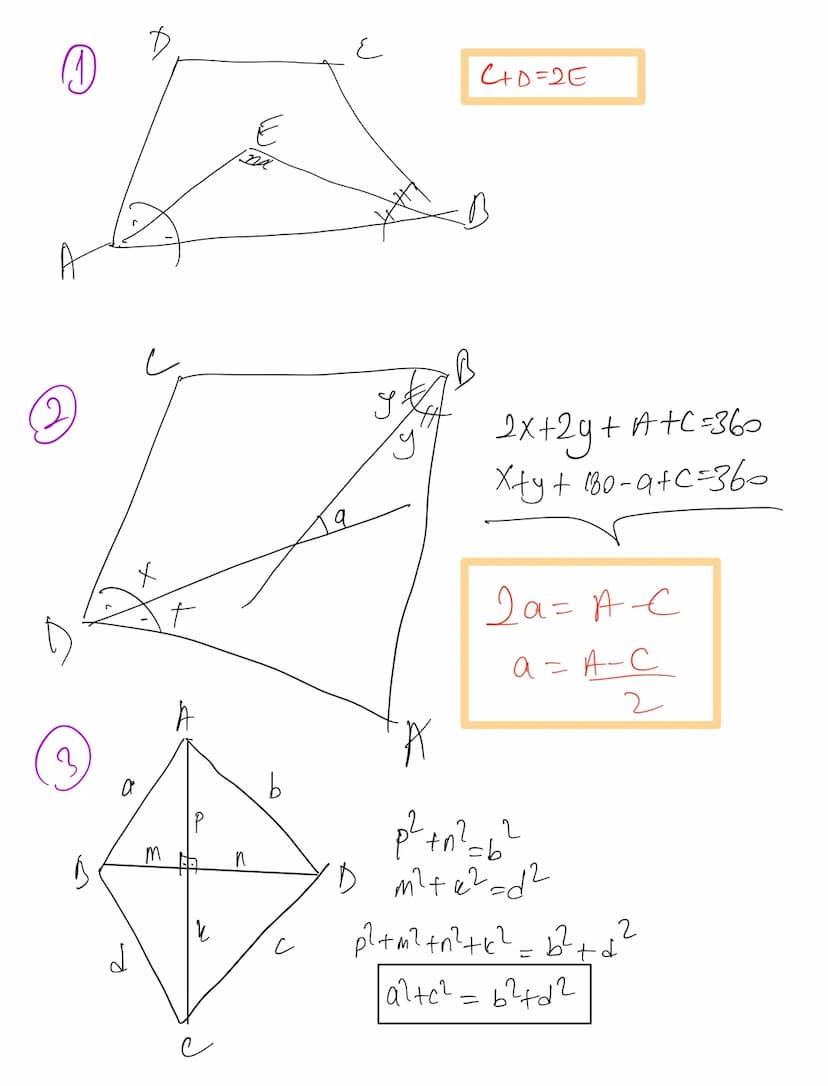 1
D
C
C+D=2E
E
B
A
2
C
B
y
y
2x+2y+A+C=360
x+y+180-a+C=360
a
x
x
D
2a=A-C
a=A-C/2
A
3
A
a
b
p
m
n
B
D
k
d
c
C
p²+n²=b²
m²+k²=d²
p²+m²+n²+k²=b²+d²
a²+c²=b²+d²